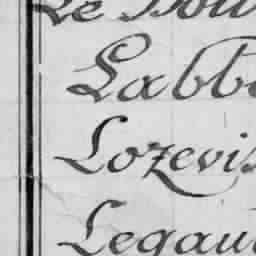 Le Bou
Labb
Lozevis
Legau